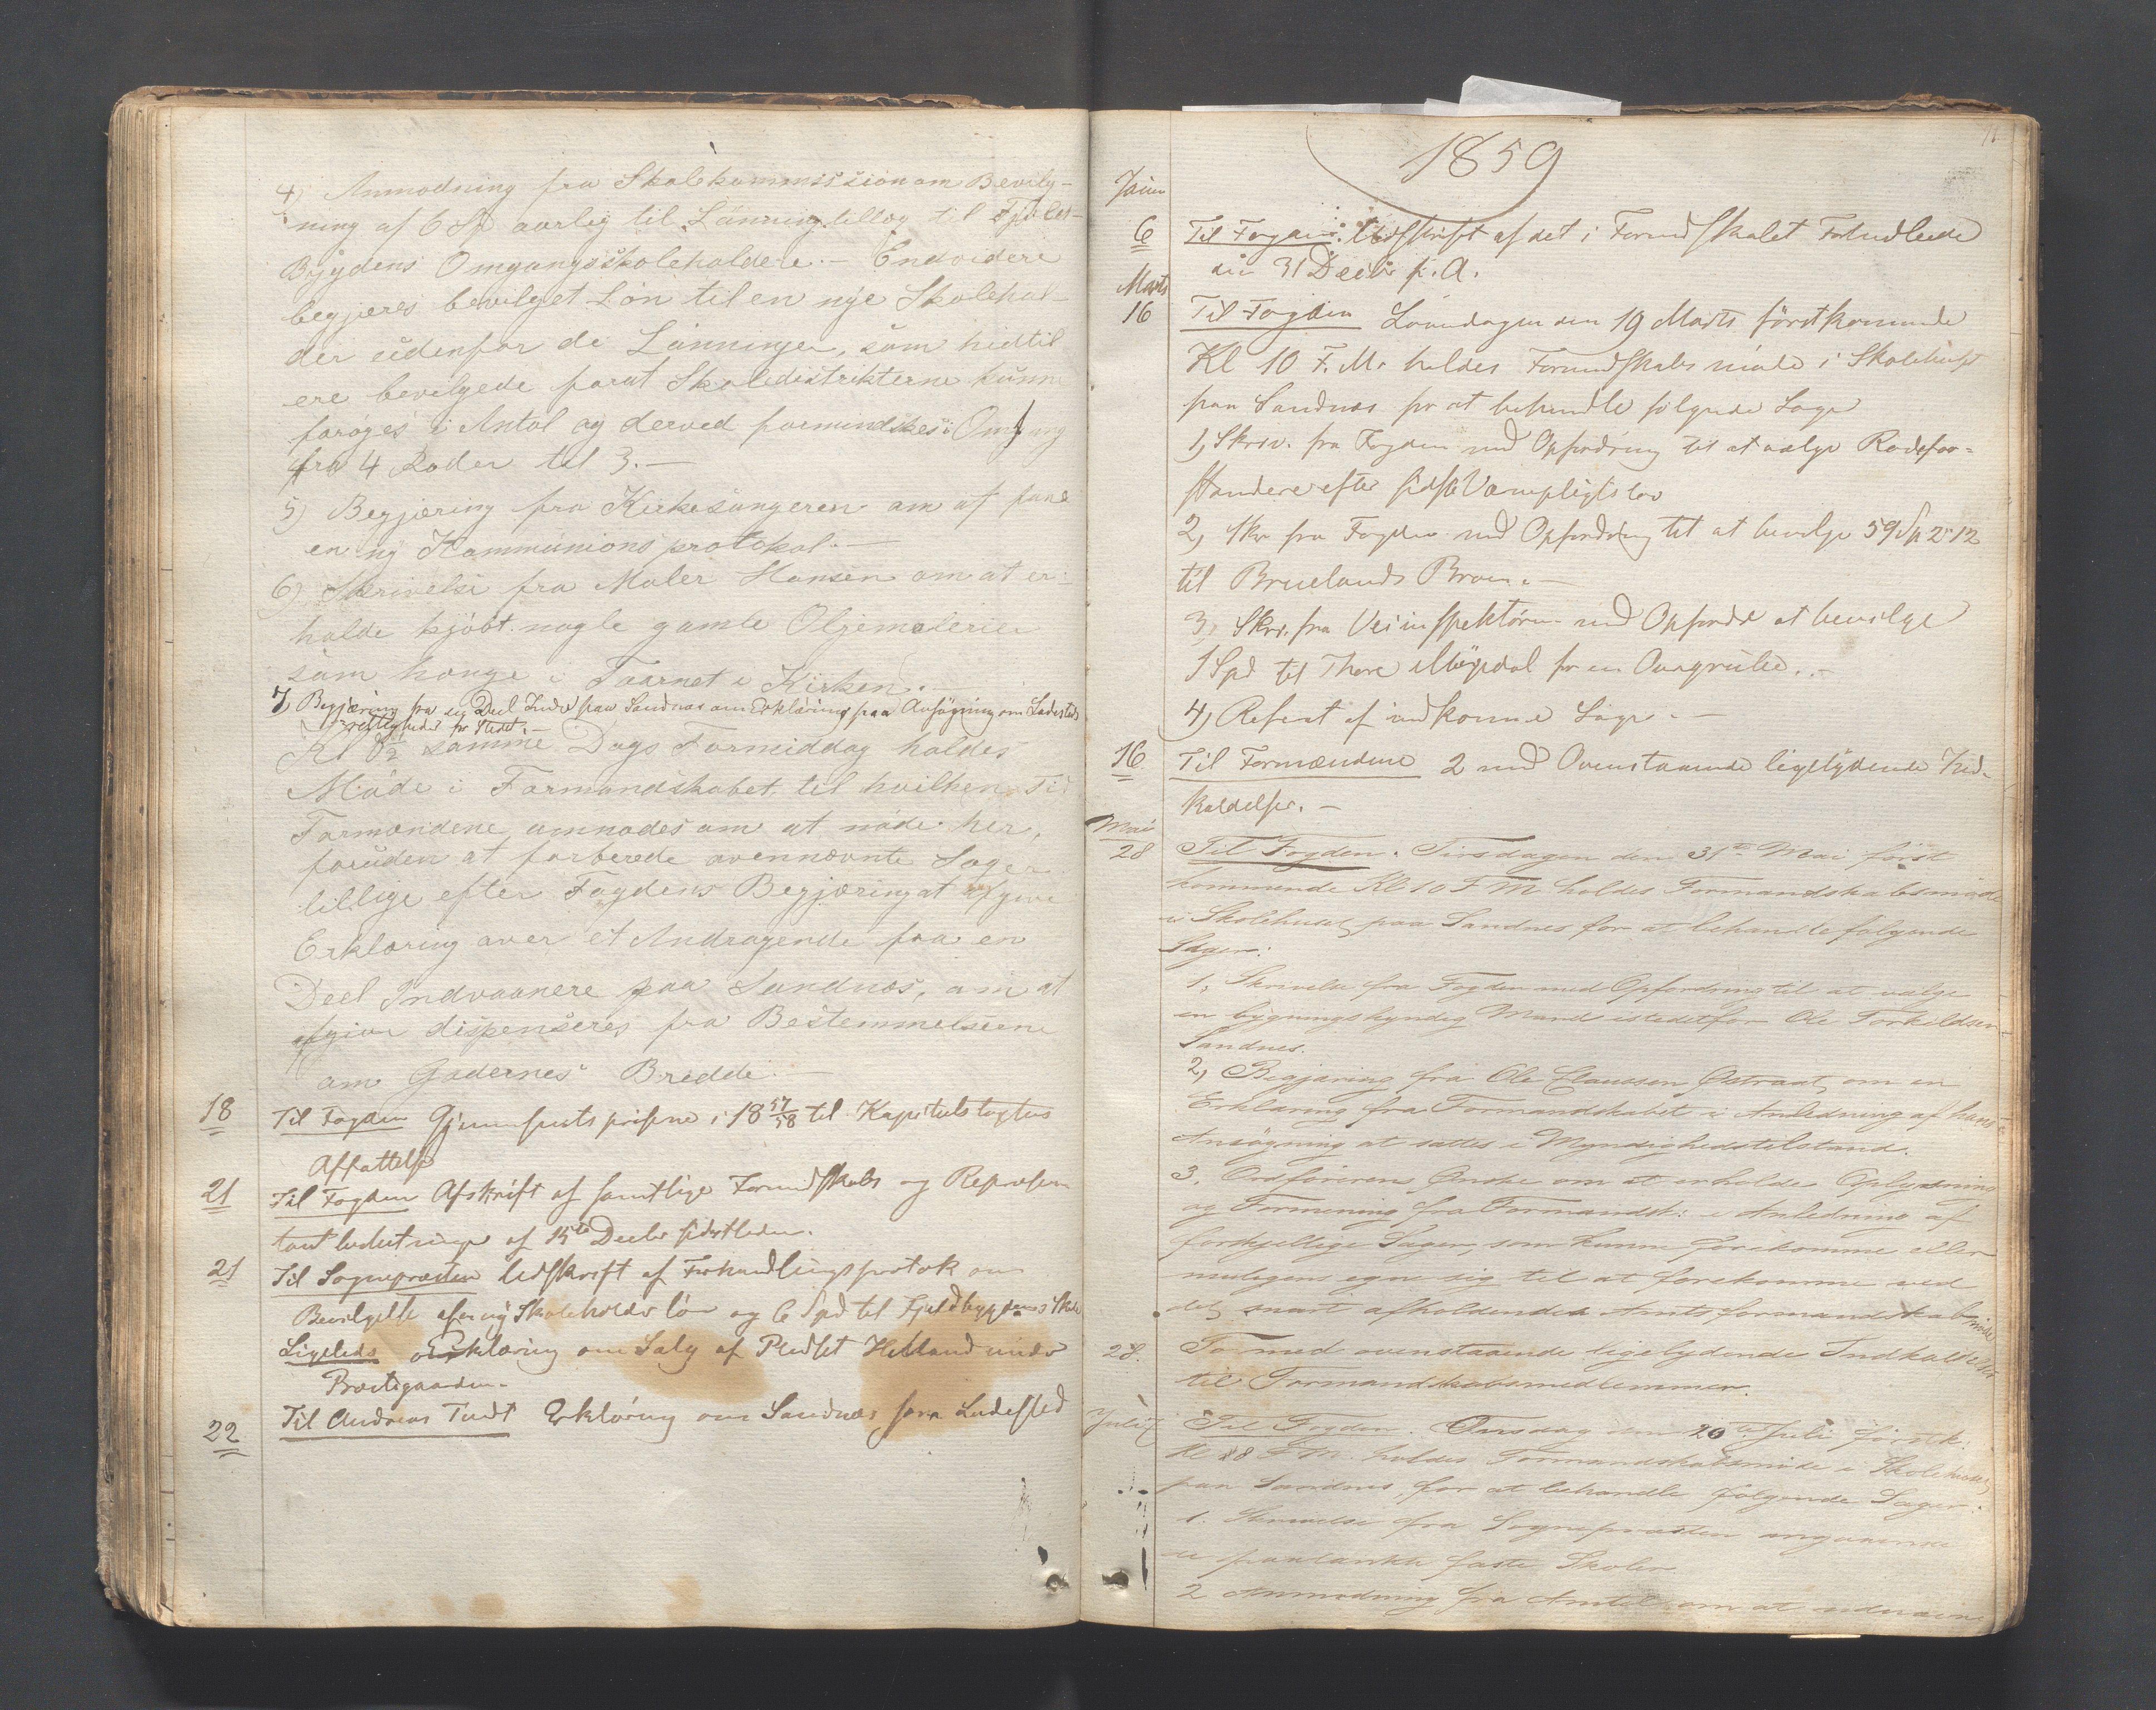 4) Anmodning fra Skolekommissionen om Bevilg-
ning af 6 Spd aarlig til Lønningstillæg til Fjeld-
Bygdens Omgangsskoleholdere. – Endvidere
begjæres bevilget Løn til en nye Skolehol-
der udenfor de Lønninger, som hidtil
ere bevilgede forat Skoledistrikterne kunne
forøges i Antal og derved formindskes i Omgang
fra 4 Roder til 3. –
5) Begjæring fra Kirkesangeren om at faae
en ny Kommunionsprotokol. –
6) Skrivelse fra Maler Hansen om at er-
holde kjøbt nogle gamle Oljemalerier
som hænge i Taarnet i Kirken. –
7) Begjæring fra en Deel Indv paa Sandnæs om Erklæring paa Ansøgning om Ladesteds
rettigheder for Stedet. –
Kl 8½ samme Dags Formiddag holdes
Møde i Formandskabet, til hvilken Tid
Formændene anmodes om at møde her,
foruden at forberede ovennævnte Sager
tillige efter Fogdens Begjæring at afgive
Erklæring over et Andragende fra en
Deel Indvaanere paa Sandnæs, om at
afgive dispenseres fra Bestemmelserne
om Gadernes Bredde. –
18 Til Fogden Gjennemsnitspriserne i 18 57/58 til Kapitelstaxtens
Affattelse
21 Til Fogden Afskrift af samtlige Formdskabs og Represen
tantbeslutninger af 15de Decbr sidstleden.
21 Til Sognepræsten Udskrift af Forhandlingsprotok om
Bevilgelse af en ny Skoleholders løn og 6 Spd til Fjeldbygdens Skole
Ligeleds Erklæring om Salg af Pladset Helland under
Præstegaarden. –
22 Til Andreas Tudt Erklæring om Sandnæs som Ladested
1859
Januar
6 Til Fogden. Udskrift af det i Formdskabet Forhandlede
den 31 Decbr f. A.
Marts
16 Til Fogden Løverdagen den 19 Marts førstkommende
Kl 10 F. M. holdes Formandskabsmøde i Skolehuset
paa Sandnæs for at behandle følgende Sager
1) Skriv. fra Fogden med Opfordring til at vælge Rodefor-
standere efter sidste Værnepligtslov
2) Skr fra Fogden med Opfordring til at bevilge 59 Sp 2 12
til Bruelands Broen. –
3) Skr. fra Veiinspektøren med Opfordr at bevilge
1 Spd til Thore Møgedal for en Aurgrube. –
4) Referat af indkomne Sager. –
16 Til Formændene 2 med Ovenstaaende ligelydende Ind-
kaldelser. –
Mai
28 Til Fogden. Tirsdagen den 31te Mai først
kommende Kl 10 F M holdes Formandskabsmøde
i Skolehuset paa Sandnes for at behandle følgende
Sager:
1, Skrivelse fra Fogden med Opfordring til at vælge
en bygningskyndig Mand istedetfor Ole Torkildsen
Sandnes.
2, Begjæring fra Ole Claussen Østraat om en
Erklæring fra Formandskabet i Anledning af hans
Ansøgning at sættes i Myndighedstilstand.
3, Ordførerens Ønske om at erholde Oplysning
og Formening fra Formandsk: i Anledning af
forskjellige Sager, som kunne forekomme eller
muligens egne sig til at forekomme ved
det snart afholdendes Amtsformandskabsmøde
28. To med ovenstaaende ligelydende Indkaldelser
til Formandskabsmedlemmer.
Juli
Til Fogden. Onsdag den 20de Juli førstk:
Kl 8 F M. holdes Formandskabsmøde i Skolehuset
paa Sandnes for at behandle følgende Sager.
1. Skrivelse fra Sognepræsten angaaende
paatænkte faste Skoler
2 Anmodning fra Amtet om at